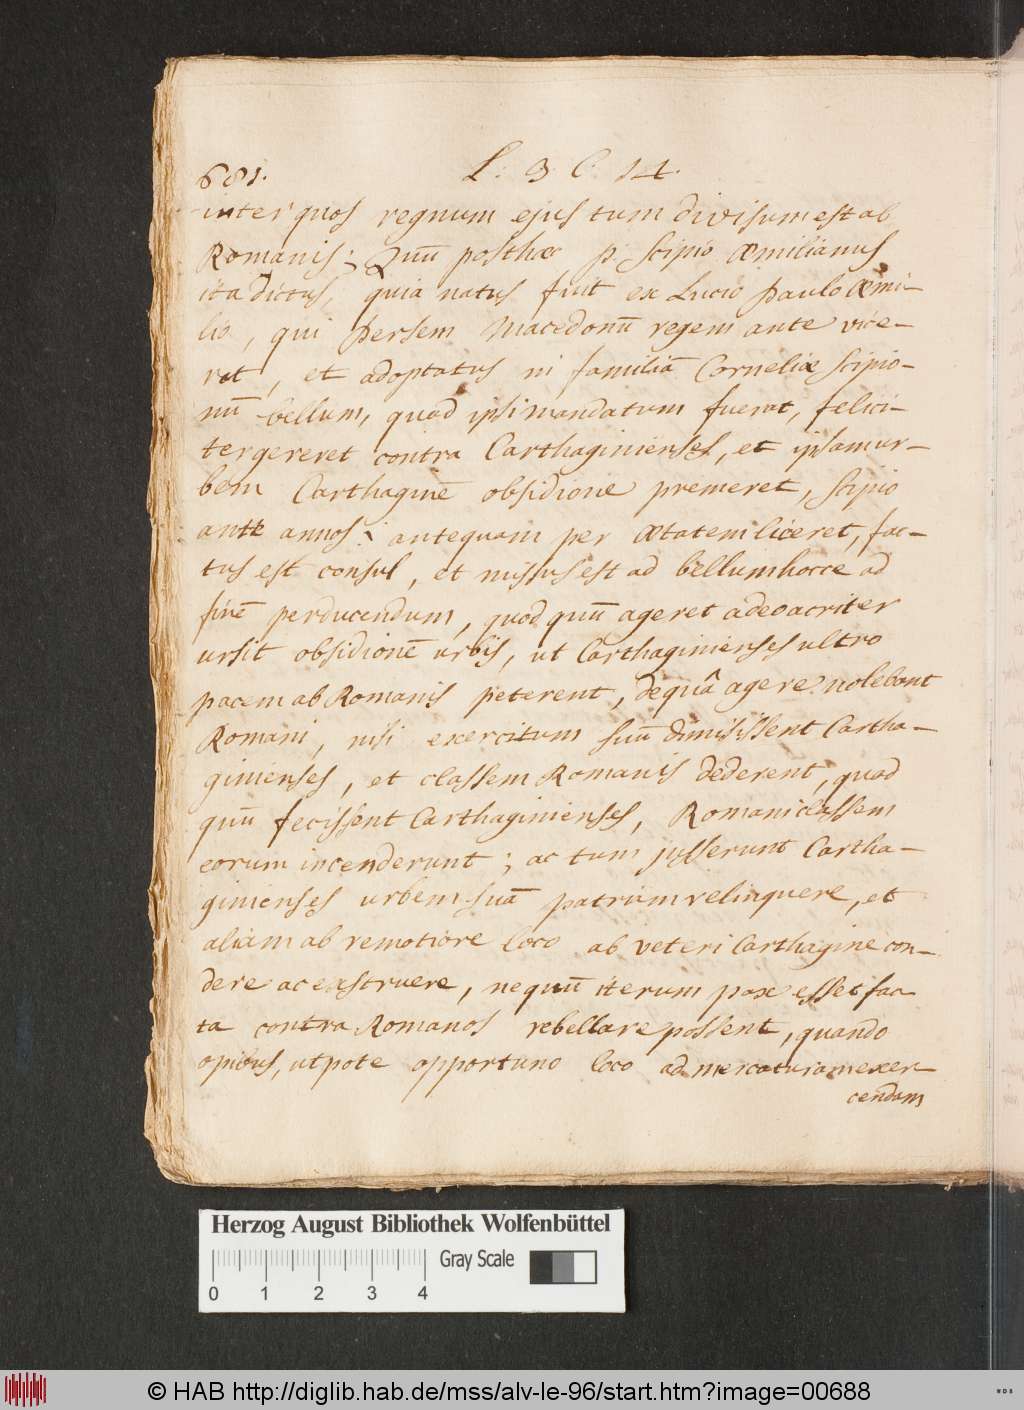 681. L: 3 C. 14.
inter quos regnum ejus tum divisum est ab
Romanis; Quū posthac P. Scipio Æmilianus
ita dictus, quia natus fuit ex Lucio Paulo Æmi-
lio, qui Persem Macedonū regem ante vice-
rat, et adoptatus in familiā Corneliæ Scipio-
nū bellum, quod ipsi mandatum fuerat, felici-
ter gereret contra Carthaginienses, et ipsam ur-
bem Carthaginē obsidione premeret, Scipio
ante annos antequam per ætatem liceret, fac-
tus est consul, et missus est ad bellum hocce ad
finē perducendum, quod quū ageret adeo acriter
ursit obsidionē urbis, ut Carthaginienses ultro
pacem ab Romanis peterent, de quâ agere nolebant
Romani, nisi exercitum suū dimisissent Cartha-
ginienses, et classem Romanis dederent, quod
quū fecissent Carthaginienses, Romani classem
eorum incenderunt; ac tum jusserunt Cartha-
ginienses urbem suā patriam relinquere, et
aliam ab remotiore loco ab veteri Carthagine con-
dere ac exstruere, ne quū iterum pax esset fac
ta contra Romanos rebellare possent, quando
opibus, utpote opportuno loco ad mercaturam exer-
cendam
Herzog August Bibliothek Wolfenbüttel
Gray Scale
0 1 2 3 4
© HAB http://diglib.hab.de/mss/alv-le-96/start.htm?image=00688